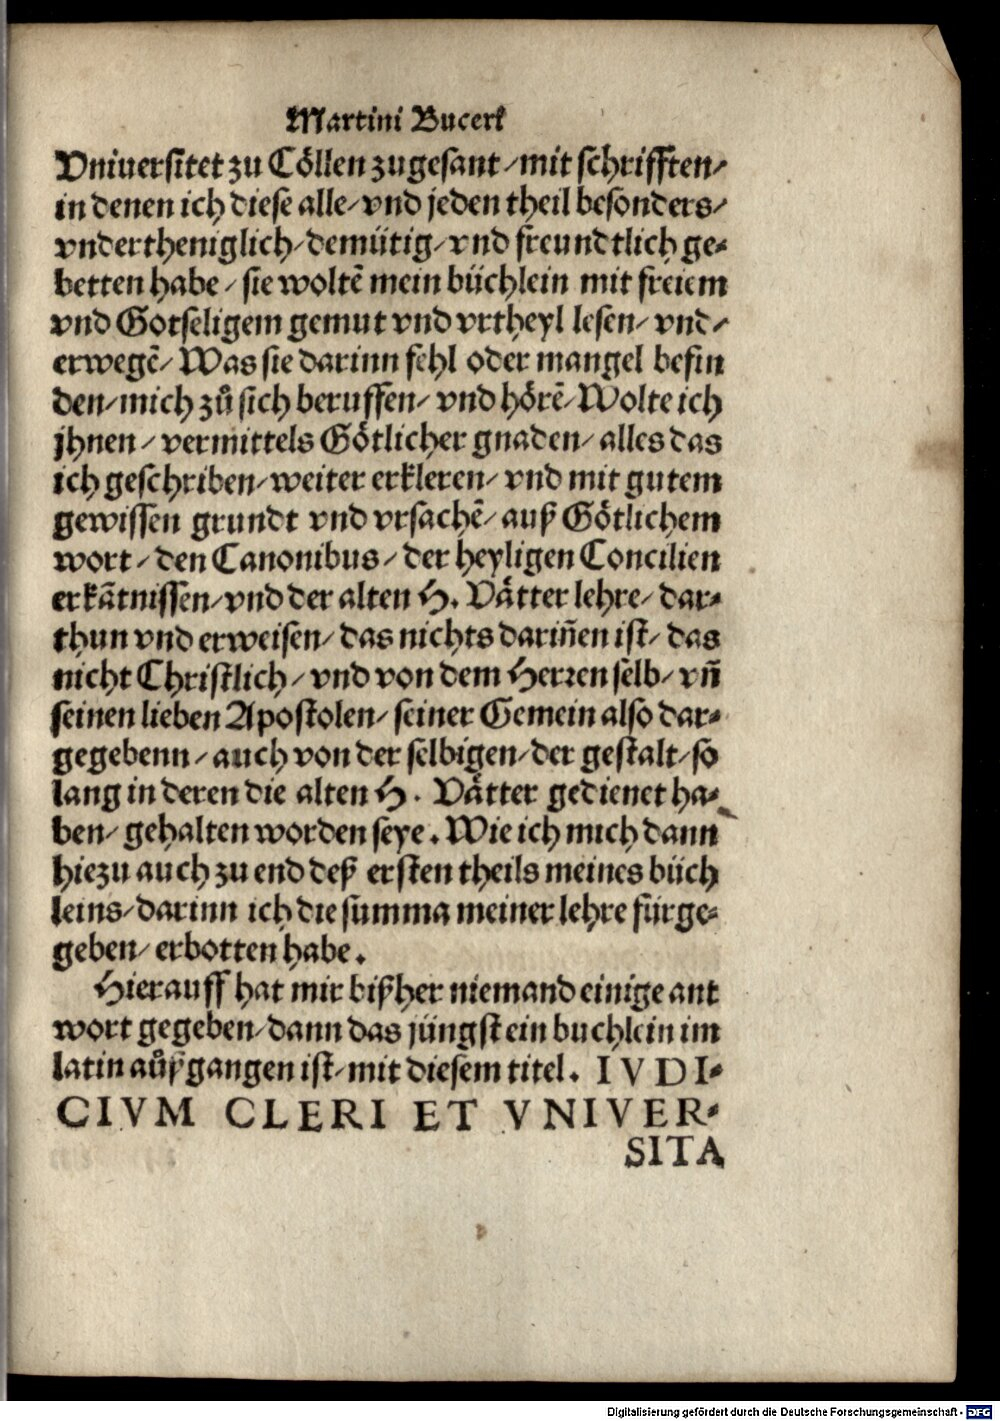 Martini Bucers
Vniuersitet zu Cöllen zugesant/mit schrifften/
in denen ich diese alle/vnd jeden theil besonders/
vndertheniglich/demütig/vnd freundtlich ge-
betten habe/sie woltē mein büchlein mit freiem
vnd Gotseligem gemut vnd vrtheyl lesen/vnd/
erwegē/Was sie darinn fehl oder mangel befin
den/mich zů sich beruffen/vnd hörē/Wolte ich
jhnen/vermittels Götlicher gnaden/alles das
ich geschriben/weiter erkleren/vnd mit gutem
gewissen grundt vnd vrsachē/auß Götlichem
wort/den Canonibus/der heyligen Concilien
erkãtnissen/vnd der alten H. Vätter lehre/dar-
thun vnd erweisen/das nichts dariñen ist/das
nicht Christlich/vnd von dem Herren selb/vñ
seinen lieben Apostolen/seiner Gemein also dar-
gegebenn/auch von der selbigen/der gestalt/so
lang in deren die alten H. Vätter gedienet ha-
ben/gehalten worden seye. Wie ich mich dann
hiezu auch zu end deß ersten theils meines büch
leins/darinn ich die summa meiner lehre fürge-
geben/erbotten habe.
Hierauff hat mir bißher niemand einige ant
wort gegeben/dann das jüngst ein buchlein im
latin aůßgangen ist/mit diesem titel. IVDI-
CIVM CLERI ET VNIVER-
SITA
Digitalisierung gefördert durch die Deutsche Forschungsgemeinschaft - DFG